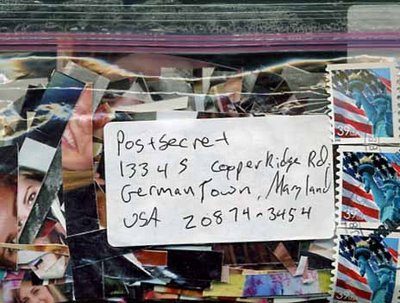 Postsecret
13345 Copper Ridge Rd.
GermanTown, Maryland
USA 20874-3454
39
39
39